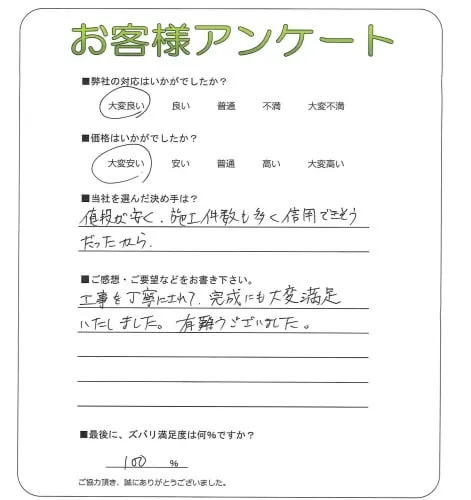 お客様アンケート
■弊社の対応はいかがでしたか？
大変良い 良い 普通 不満 大変不満
■価格はいかがでしたか？
大変安い 安い 普通 高い 大変高い
■当社を選んだ決め手は？
値段が安く、施工件数も多く信用できそう
だったから。
■ご感想・ご要望などをお書き下さい。
工事を丁寧にされて、完成にも大変満足
いたしました。有難うございました。
■最後に、ズバリ満足度は何％ですか？
100 ％
ご協力頂き、誠にありがとうございました。